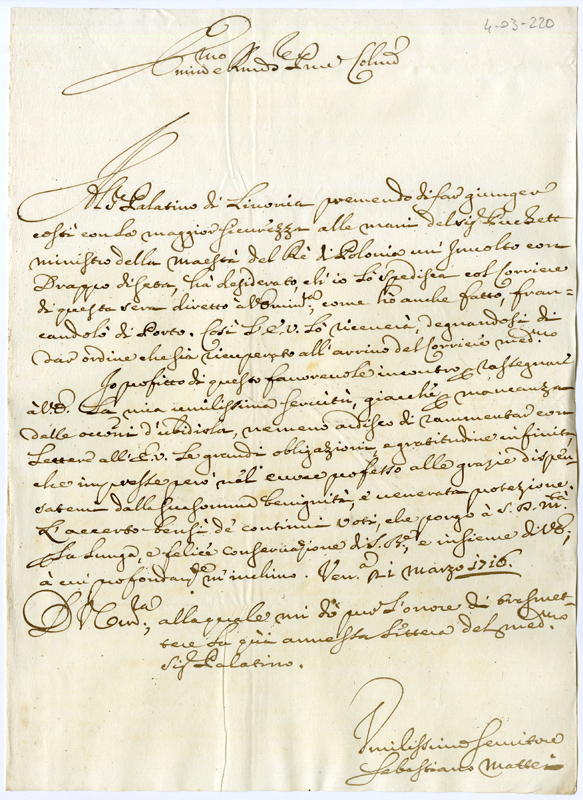 4-03-220
Em.mo e Rmo Prne Colmo
Il Sig.r Palatino di Livonia premendo di far giunger
costì con la maggior sicurezza alle mani del sig.r Puchett
ministro della Maestà del Rè di Polonia un' Involto con
Drappo di seta, hà desiderato, ch'io lo spedisca col Corriere
di questa sera diretto à V. Emin.za, come hò anche fatto, fran-
candolo di Porto. Così l'E.V. lo riceverà, degnandosi di
dar ordine che sia ricuperato all'arrivo del Corriere med.mo
Io profitto di questo favorevole incontro p rassegnare
à V.E. la mia umilissima servitù, giacchè p mancanza
delle occ.oni d'ubidirla, nemeno ardisco di rammentar con
Lettere all'E.V. le grandi obligazioni, e gratitudine infinita,
che impresse però nel cuore professo alle grazie dispen-
satemi dalla sua somma benignità, e venerata protezione.
L'accerto bensì de continui voti, che porgo à S. D. M.tà
p la lunga, e felice conservazione di S. B.ne e insieme di V.E.,
à cui profondam.te m'inchino. Ven.a 21 Marzo 1716.
D. V. Em.za, alla quale mi dò pur l'onore di trasmet-
tere la quì annessa lettera del med.mo
Sig.r Palatino.
Umilissimo Servitore
Sebastiano Mattei